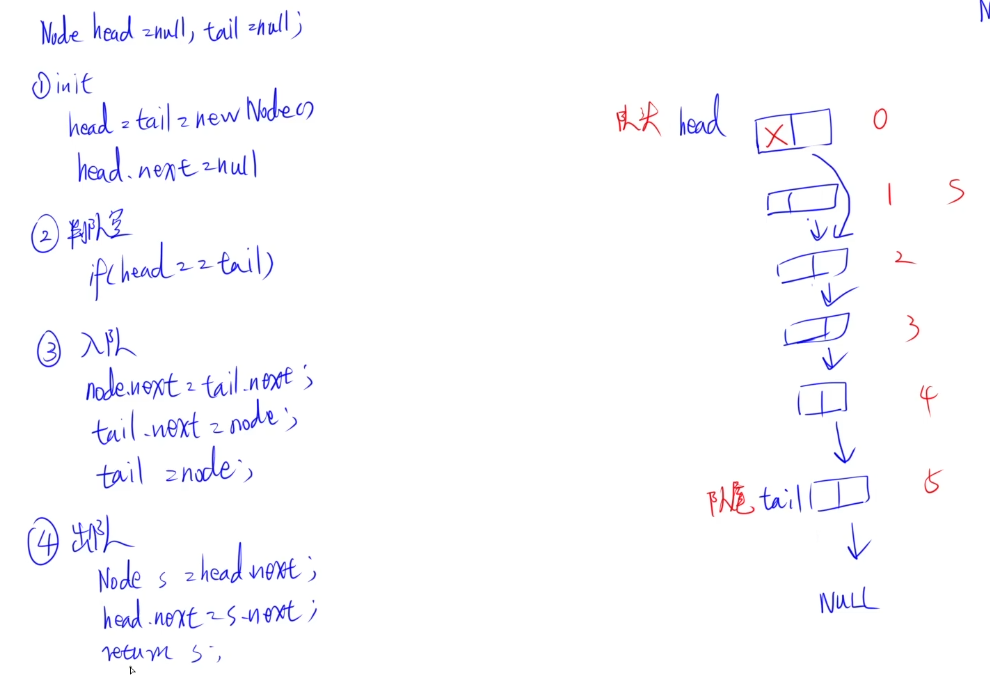 Node head=null, tail=null;
①init
head=tail=new Node()
head.next=null
②判队空
if(head==tail)
③入队
node.next=tail.next;
tail.next=node;
tail =node;
④出队
Node s=head.next;
head.next=s.next;
return s;
N
队头 head X 0
1 S
2
3
4
队尾 tail 5
NULL